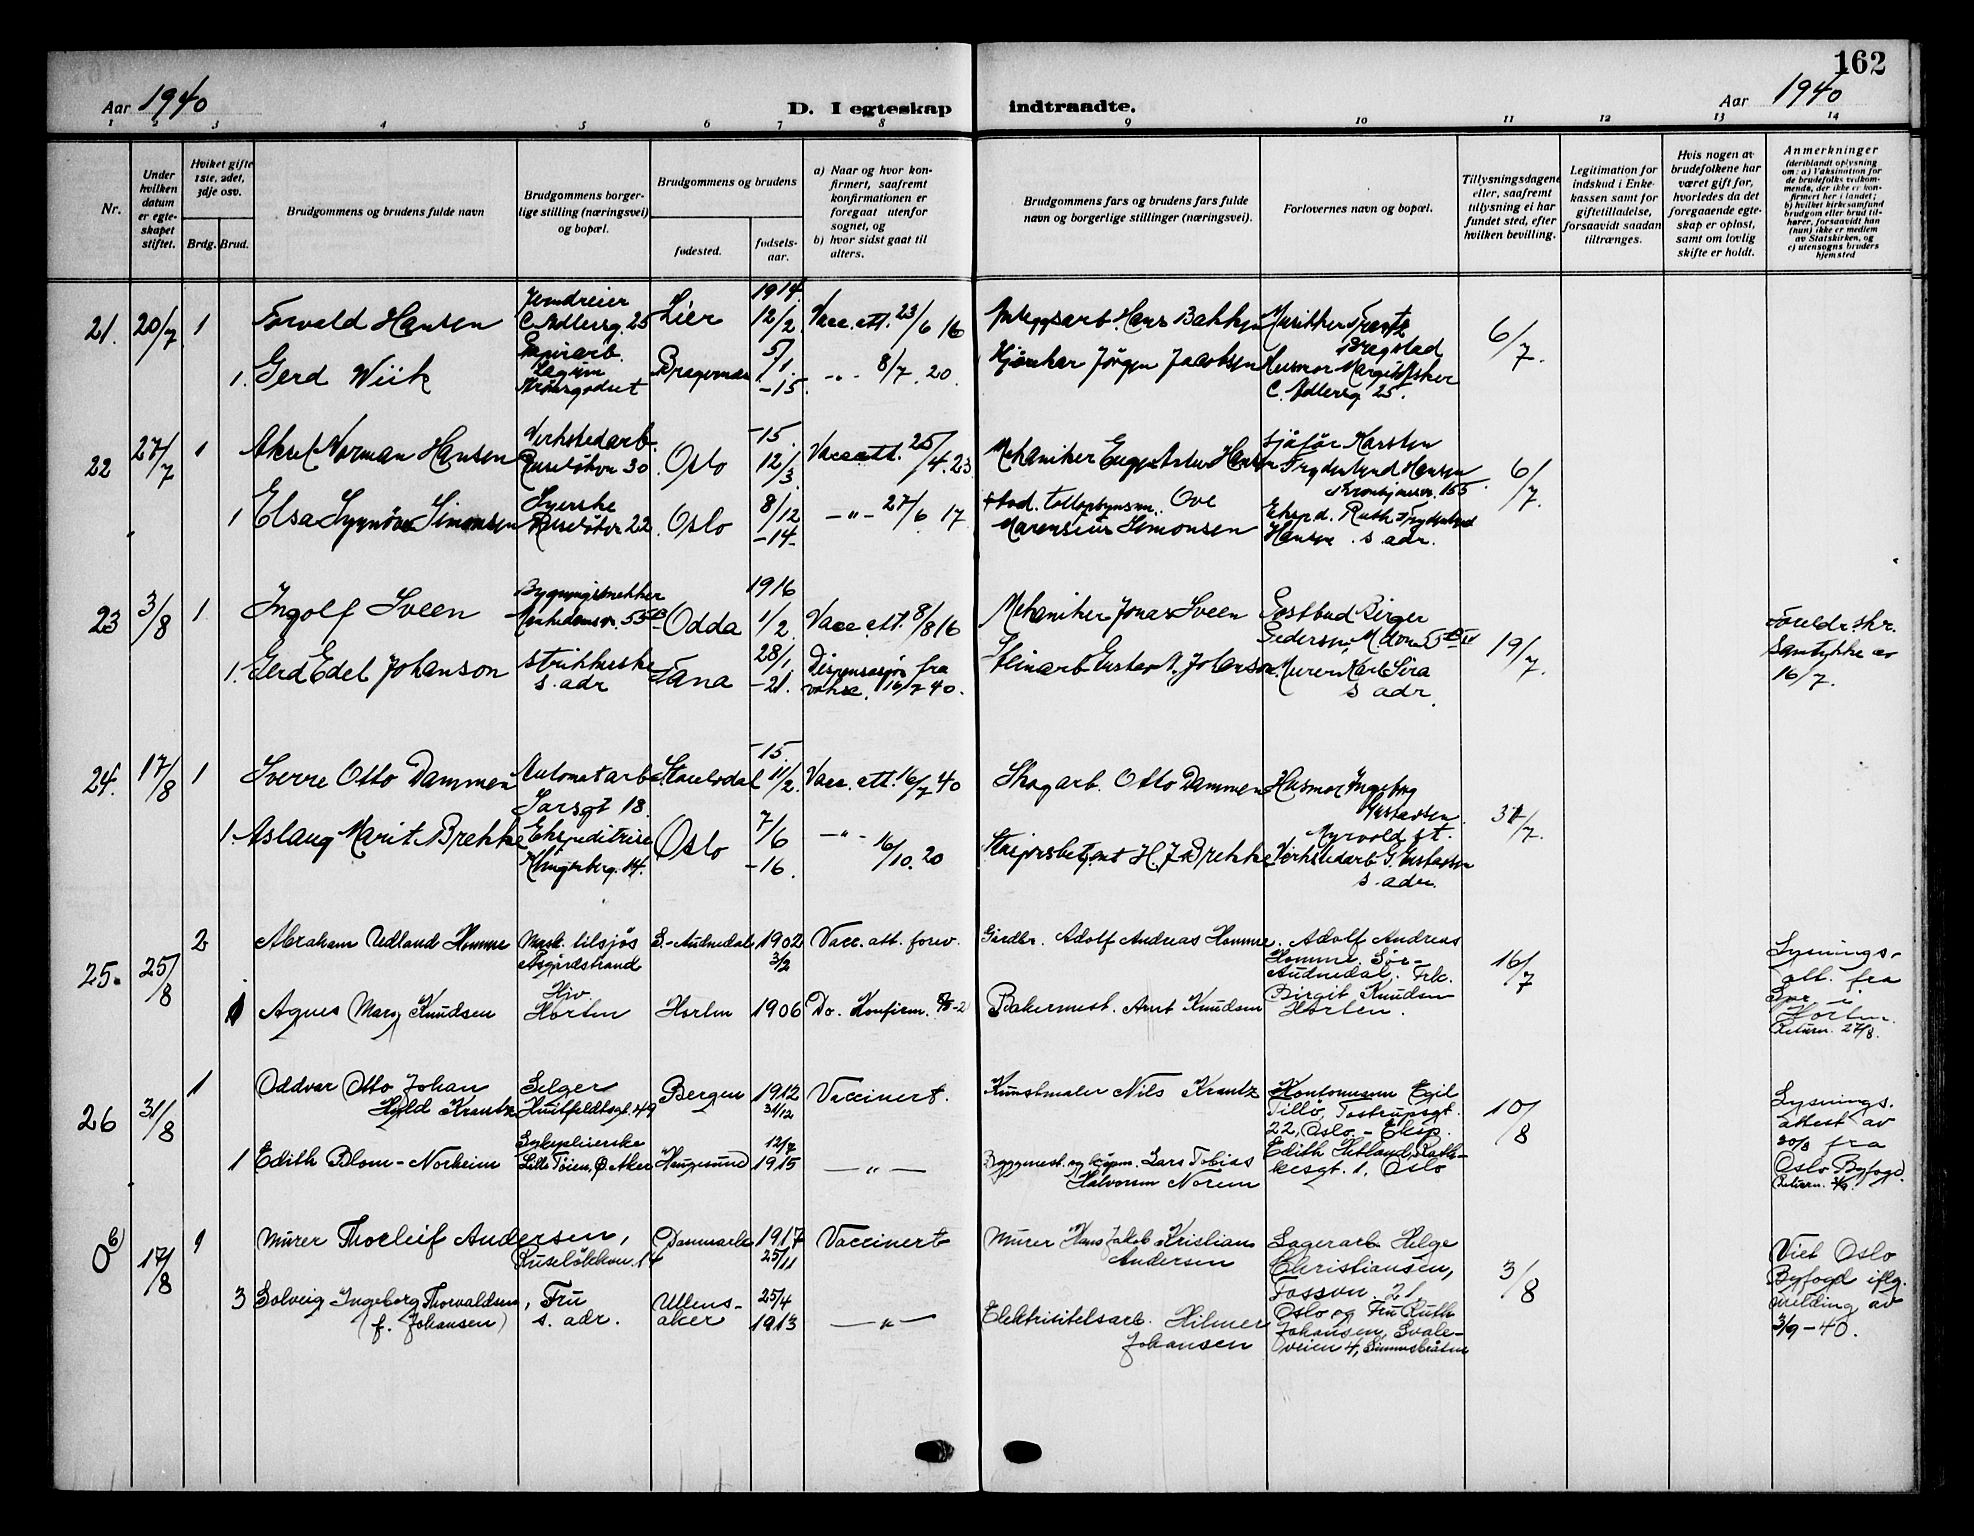 162
Aar 1940
D. I egteskap indtraadte.
Aar 1940
1 2 3 4 5 6 7 8 9 10 11 12 13 14
Nr.
Under hvilken datum er egteskapet stiftet.
Hvilket gifte 1ste, 2det, 3dje osv.
Brdg. Brud.
Brudgommens og brudens fulde navn
Brudgommens borgerlige stilling (næringsvei) og bopæl.
Brudgommens og brudens
fødested.
fødselsaar.
a) Naar og hvor konfirmert, saafremt konfirmationen er foregaat utenfor sognet, og
b) hvor sidst gaat til alters.
Brudgommens fars og brudens fars fulde navn og borgerlige stillinger (næringsvei).
Forlovernes navn og bopæl.
Tillysningsdagene eller, saafremt tillysning ei har fundet sted, efter hvilken bevilling.
Legitimation for indskud i Enkekassen samt for giftetilladelse, forsaavidt saadan tiltrænges.
Hvis nogen av brudefolkene har været gift før, hvorledes da det foregaaende egteskap er opløst, samt om lovlig skifte er holdt.
Anmerkninger (deriblandt oplysning om: a) Vaksination for de brudefolks vedkommende, der ikke er konfirmert her i landet; b) hvilket kirkesamfund brudgom eller brud tilhører, forsaavidt han (hun) ikke er medlem av Statskirken, og c) utensogns bruders hjemsted
21. 20/7 1 Torvald Hansen Jerndreier C. Adlersg. 25 Lier 1914 12/2 Vacc. att. 23/6 16 Hans Bakken 6/7.
1. Gerd Wiik Papirarb. Strømsgodset Bragernes 5/1 -15. -"- 8/7. 20. Jørgen Jacobsen Husmor Margit Asker C. Adlersg 25.
22 27/7 1 Aksel Norman Hansen Verkstedarb. Ruseløkvn 30 Oslo -15. 12/3 Vacc. att. 25/4. 23 Mekaniker Hansen Sjåfør Karsten Frydenlund Hansen 155. 6/7.
1 Elsa Synnöve Simonsen Syerske Ruseløkvn 22 Oslo 8/12 -14- -"- 27/6 17 Ove Marensius Simonsen Eksped. Ruth Frydenlund Hansen s. adr.
23 3/8 1 Ingolf Sveen Bygningssnekker Munkedamsv. 53B Odda 1916 1/2 Vacc. att. 8/8 16 Mekaniker Jonas Sveen Postbud Birger Pedersen, 19/7.
Foreldr. skr. Samtykke av 16/7.
1. Gerd Edel Johanson Strikkerske s. adr Tana 28/1 -21. Dispensasjon fra vaksc. 16/7 40. Steinarb Gustav A. Johanson Murer Karl Sira s adr.
24. 17/8 1 Sverre Otto Dammen Automatarb Sarsgt 18. -15. 11/2. Vacc. att. 16/7 40 Skogarb. Otto Dammen Husmor Ingeborg Gustavsen Myrvold st. 31/7.
1. Aslaug Marit Brekke Ekspeditrise Oslo 7/6 -16. -"- 16/10. 20 H. J. Brekke Verkstedarb G. Gustavsen s. adr.
25. 25/8 2 Abraham Udland Homme Mask. tilsjøs Åsgårdstrand S.-Audnedal 1902 3/2 Vacc. att. forev. Gårdbr. Adolf Andreas Homme. Adolf Andreas Homme, Sør-Audnedal. Frk. Birgit Knudsen Horten. 16/7
Lysningsatt. fra Spr. i Horten. Return. 27/8.
1 Agnes Mary Knudsen Hjv Horten Horten 1906 Do. Konfirm. Bakermest. Arnt Knudsen
26 31/8 1 Oddvar Otto Johan Hyld Krantz Selger Huitfeldtsgt. 49 Bergen 1912 31/12 Vaccinert. Kunstmaler Nils Krantz Kontormann Egil Tillö, Tostrupsgt. 22, Oslo. - Eksp. Edith Hetland, 1. Oslo 10/8
Lysnings. attest av 20/8 fra Oslo Byfogd. Return.
1 Edith Blom-Norheim Sykepleierske Lille Töien, Ö. Aker Haugesund 12/7 1915 -"- Byggmest. og kjøpm. Lars Tobias Halvorsen Noreim
0 b) 17/8 1 Murer Thorleif Andersen, Ruselökkvn. 14 Danmark 1917 25/11 Vaccinert Murer Hans Jakob Kristian Andersen Lagerarb. Helge Christiansen, Fossvn. 21, Oslo og Fru Ruth Johansen, Svaleveien 4, 3/8
Viet Oslo Byfogd iflg. melding av 3/9-40.
3 Solveig Ingeborg Thorvaldsen (f. Johansen), Fru s. adr. Ullensaker 25/4 1913 -"- Elektrisitetsarb. Hilmer Johansen